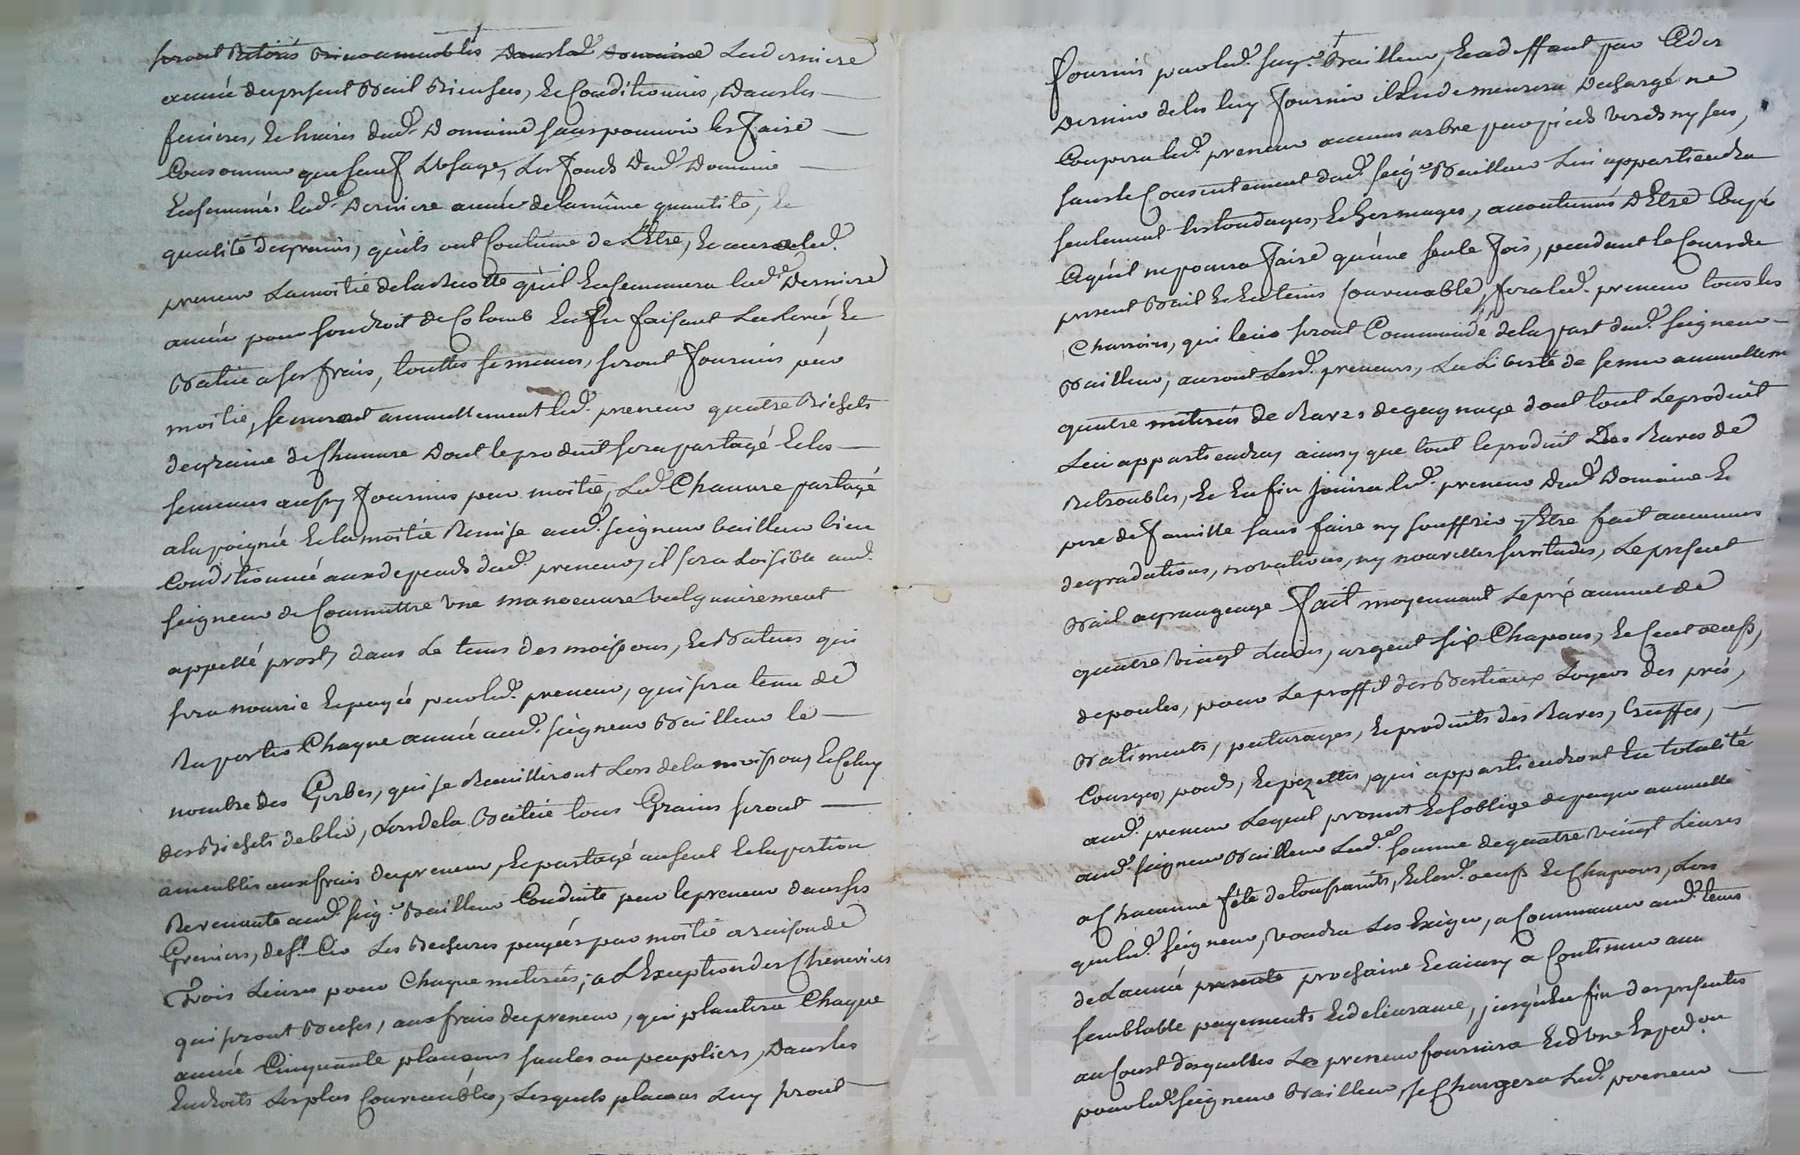 seront Retirés Dans led. Domaine La derniere
année du present Bail Bien secs, et Conditionnés, Dans les
fenieres, et haires dud. Domaine sans pouvoir les faire
Consommer que sauf L'usage, Les fonds Dud. Domaine
Ensemencés lad. Derniere année de la même quantité, et
qualité de grains, qu'ils ont Coutume de L'Etre, Et aura led.
preneur La moitié de la Recolte qu'il Ensemencera lad. Derniere
année pour son droit de Colomb En En faisant La Levée, Et
Batue a ses frais, touttes semences, seront fournies par
moitié, semeront annuellement led. preneur quatre Bichets
de graine de Chanvre Dont le produit sera partagé Et les
semences aussy fournies par moitié, Led. Chanvre partagé
a la poignée Et la moitié Remise aud. seigneur bailleur bien
Conditionnée aux depends dud. preneur, il sera Loisible aud.
seigneur de Commettre une manoeuvre vulgairement
appellé prost, dans Le tems des moissons, Et Batues qui
sera nourrie Et payée par led. preneur, qui sera tenu de
Raporter Chaque année aud. seigneur Bailleur le
nombre des Gerbes, qui se Recuilliront Lors de la moisson, Et Celuy
des Bichets de bled, Lors de la Batue tous Grains seront
ameublis aux frais du preneur, Et partagé au seul Et la portion
Revenante aud. seig.r Bailleur Conduite par le preneur dans ses
Greniers, Les Bechures payées par moitié a raison de
Trois Livres pour Chaque meterée, a L'Exception des Chenevieres
qui seront Bechés, aux frais du preneur, qui plantera Chaque
année Cinquante plancons saules ou peupliers, Dans les
Endroits Les plus Convenables, Lesquels plancons Luy seront
fournis par led. seig.r Bailleur, Et a deffaut par Ce
Dernier de les luy fournir il En demeurera Dechargé ne
Coupera led. preneur aucuns arbre par pieds verds ny secs,
sans le Consentement dud. seig.r Bailleur Lui appartiendra
seulement les tondages, Et Germages, accoutumés D'Etre Coupés
Ce qu'il ne poura faire qu'une seule fois, pendant le Cours du
present Bail Et En tems Convenable, fera led. preneur tous les
Charrois, qui leur seront Commandé de la part dud. seigneur
Bailleur, auront Lesd. preneurs, La Liberté de semer annuellement
quatre meterées de Raves de gagnage dont tout Le produit
Lui appartiendra, ainsy que tout le produit Des Raves de
Retroubles, Et Enfin Jouira led. preneur Dud. Domaine En
pere de famille sans faire ny souffrir y Etre fait aucunes
degradations, novations, ny nouvelles servitudes, Le present
Bail a grangeage fait moyennant Le prix annuel de
quatre vingt Livres, argent six Chapons, Et Cent oeufs,
de poules, pour Le proffit des Bestiaux Loyers des prés,
Batiments, paturages, Et produits des Raves, truffes,
Courges, poids, Et pezettes, qui appartiendront En totalité
aud. preneur Lequel promet Et s'oblige de payer annuellement
aud. seigneur Bailleur Lad. somme de quatre vingt Livres
a Chacune fête de toussaints, Et lesd. oeufs Et Chapons, Lors
que led. seigneur, voudra Les Exiger, a Commancer aud. tems
de L'année presente prochaine Et ainsy a Continuer aux
semblable payements Et delivrance, jusqu'a La fin des presentes
au Cours desquelles Le preneur fournira Expedon
pour led. seigneur Bailleur, se Chargera Led. preneur